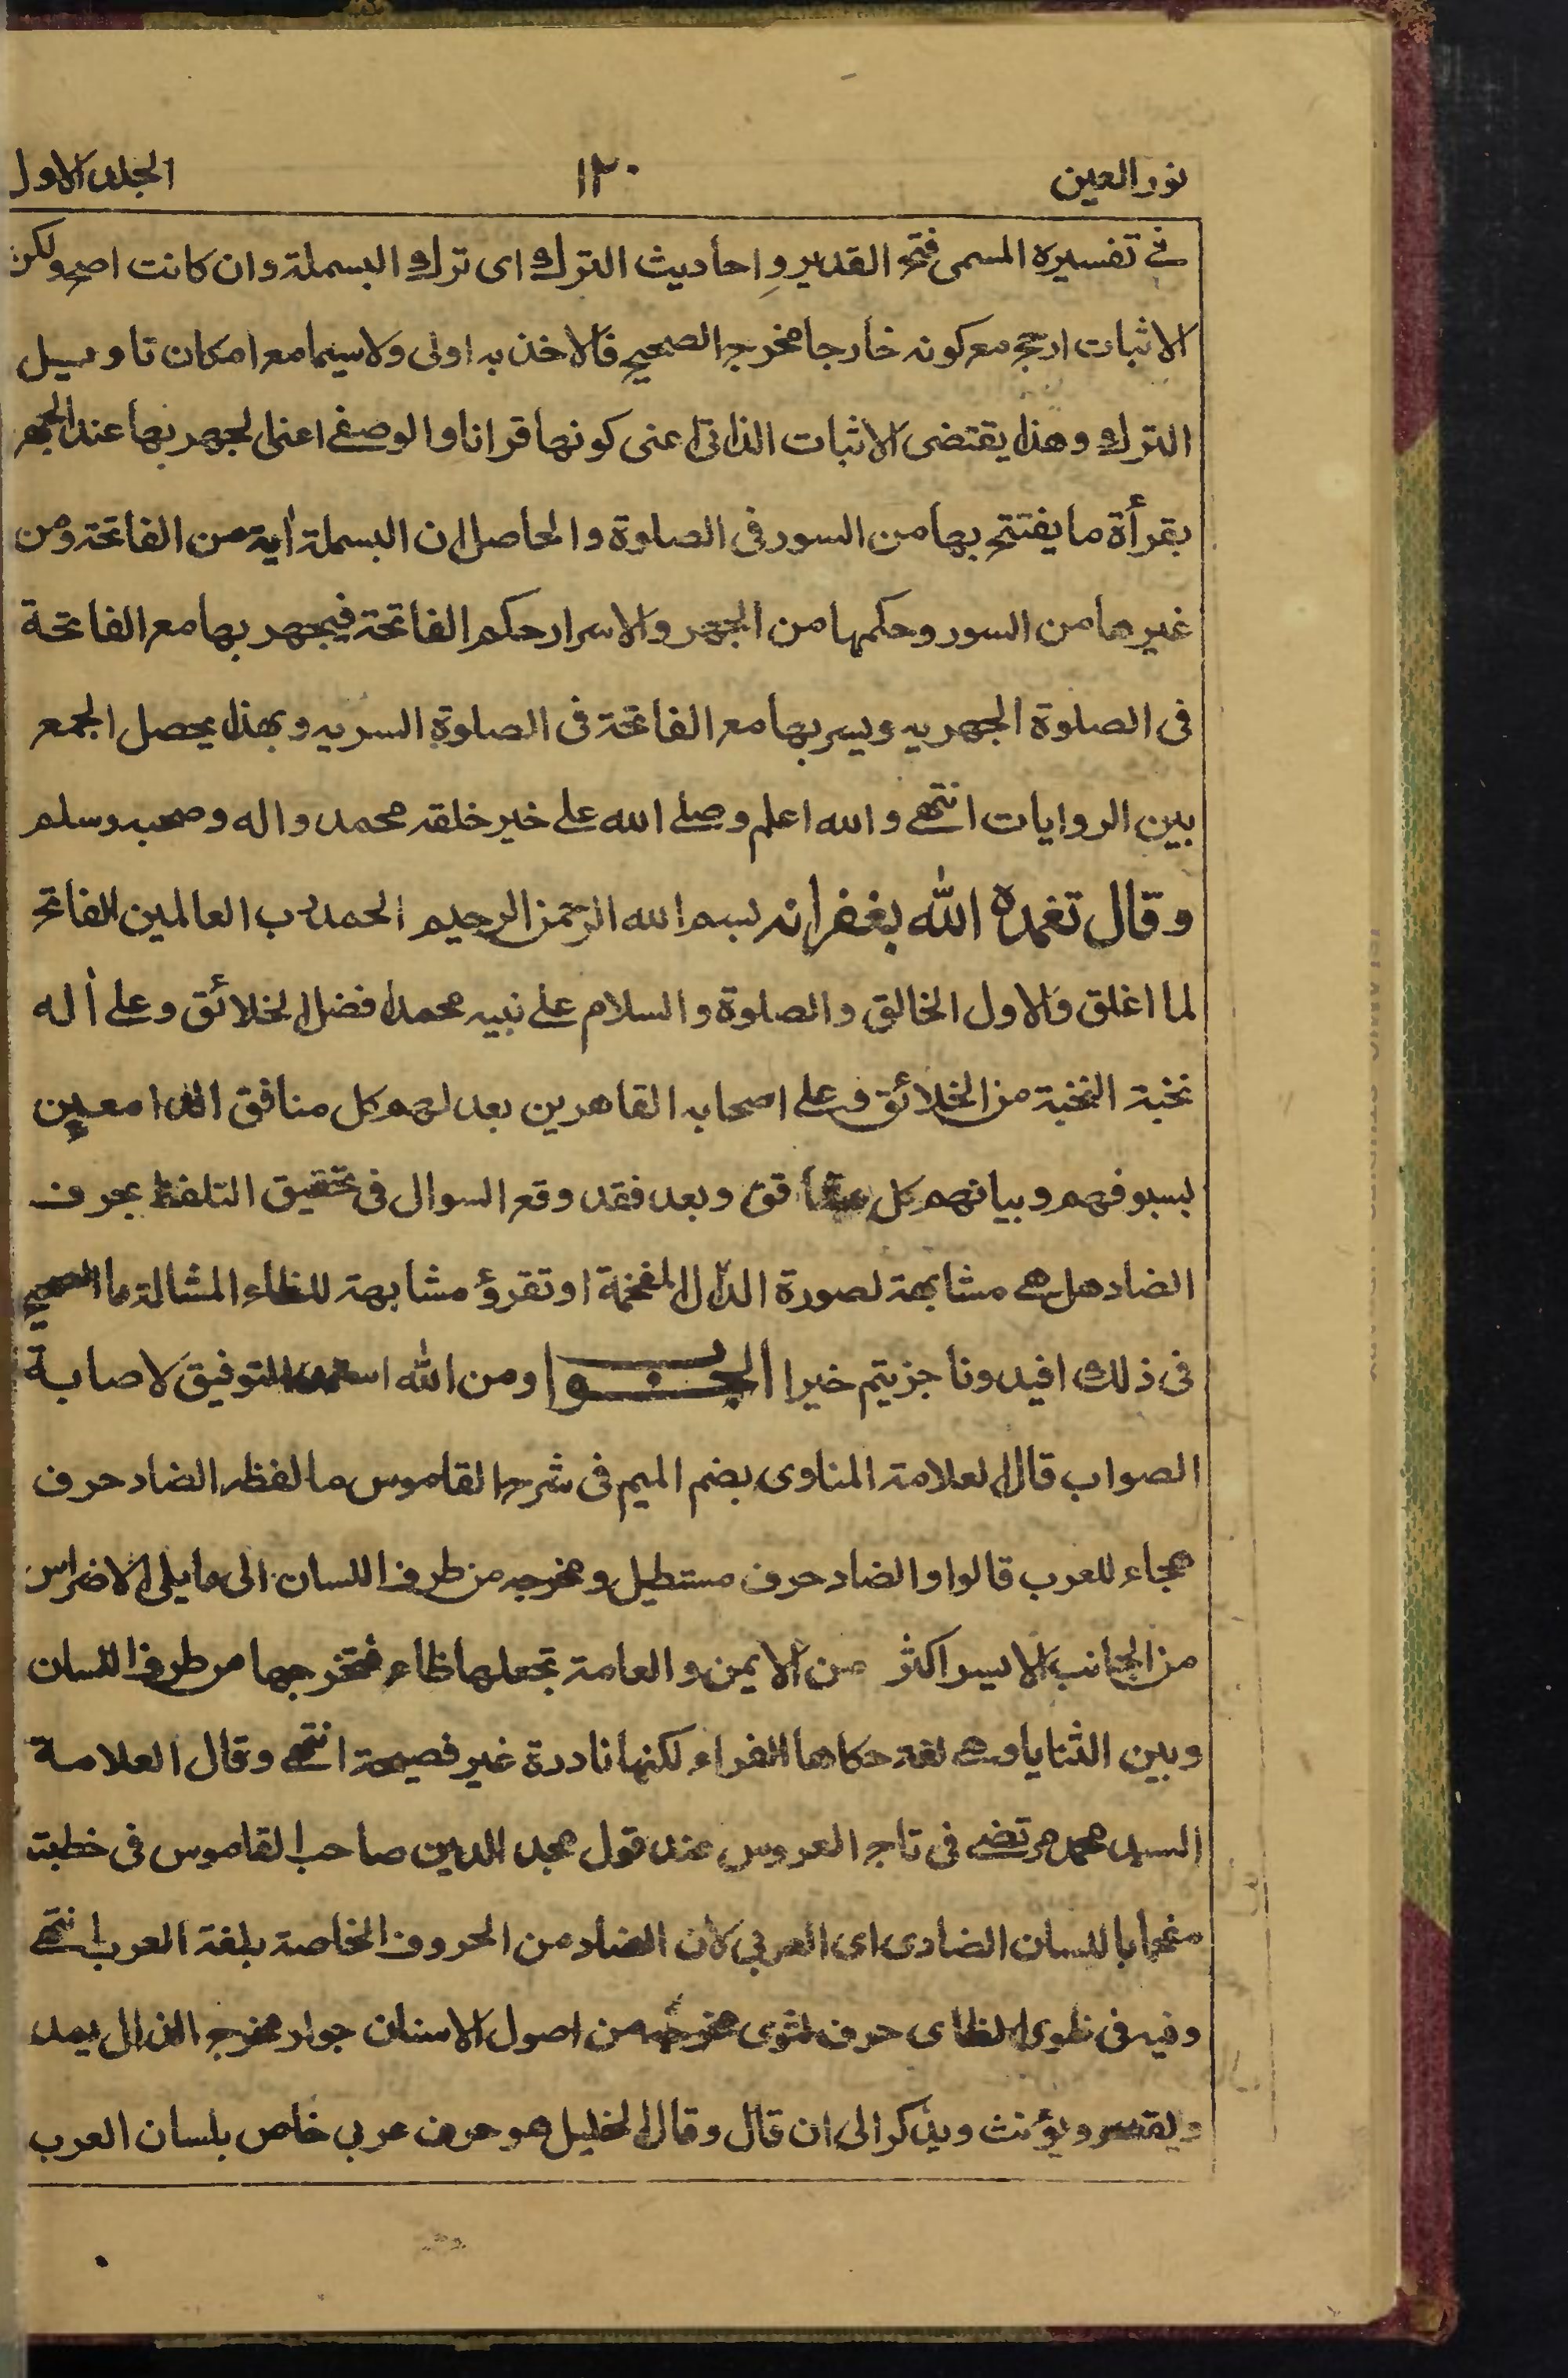 نور العين ١٢٠ الجلد الاول
فى تفسيره المسمى فتح القدير واحاديث الترك اى ترك البسملة وان كانت اصح ولكن
الاثبات ارجح مع كونه خارجا مخرج الصحيح فالاخذ به اولى ولا سيما مع امكان تاويل
الترك وهذا يقتضى الاثبات الذاتى اعنى كونها قرانا والوصفى اعنى الجهر بها عند الجهر
بقرأة ما يفتتح بها من السور فى الصلوة والحاصل ان البسملة أية من الفاتحة ومن
غيرها من السور وحكمها من الجهر والاسرار حكم الفاتحة فيجهر بها مع الفاتحة
فى الصلوة الجهريه ويسر بها مع الفاتحة فى الصلوة السريه وبهذا يحصل الجمع
بين الروايات انتهى والله اعلم وصلى الله على خير خلقه محمد واله وصحبه وسلم
وقال تغمده الله بغفرانه بسم الله الرحمن الرحيم الحمد لرب العالمين الفاتح
لما اغلق والاول الخالق والصلوة والسلام على نبيه محمد افضل الخلائق وعلى أله
نخبة النخبة من الخلائق وعلى اصحابه القاهرين بعد لهم كل منافق الدامعين
بسيوفهم وبيانهم كل وبعد فقد وقع السوال فى تحقيق التلفظ بحرف
الضاد هل هى مشابهة لصورة الدال المفخمة او تقرؤ مشابهة للظاء المشالة ما الصحيح
فى ذلك افيدونا جزيتم خيرا الجواب ومن الله استمد التوفيق لاصابة
الصواب قال العلامة المناوى بضم الميم فى شرح القاموس ما لفظه الضاد حرف
هجاء للعرب قالوا والضاد حرف مستطيل ومخرجه من طرف اللسان الى ما يلى الاضراس
من الجانب الايسر اكثر من الايمن والعامة تجعلها ظاء فتخرجها من طرف اللسان
وبين الثنايا وهى لغة حكاها الفراء لكنها نادرة غير فصيحة انتهى وقال العلامة
السيد محمد مرتضى فى تاج العروس عند قول مجد الدين صاحب القاموس فى خطبته
باللسان الضادى اى العربى لان الضاد من الحروف الخاصة بلغة العرب انتهى
وفيه فى ظوى الظاى حرف لثوى مخرجه من اصول الاسنان جوار مخرج الذال يمد
ويقصر ويؤنث ويذكر الى ان قال وقال الخليل هو حرف عربى خاص بلسان العرب